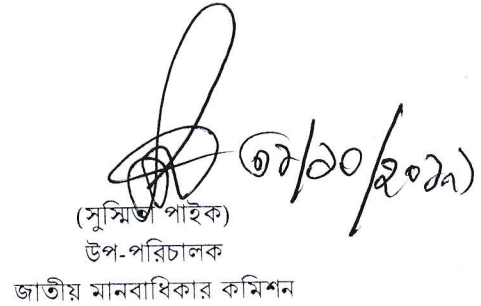 ৩১/১০/২০১৭
(সুস্মিতা পাইক)
উপ-পরিচালক
জাতীয় মানবাধিকার কমিশন